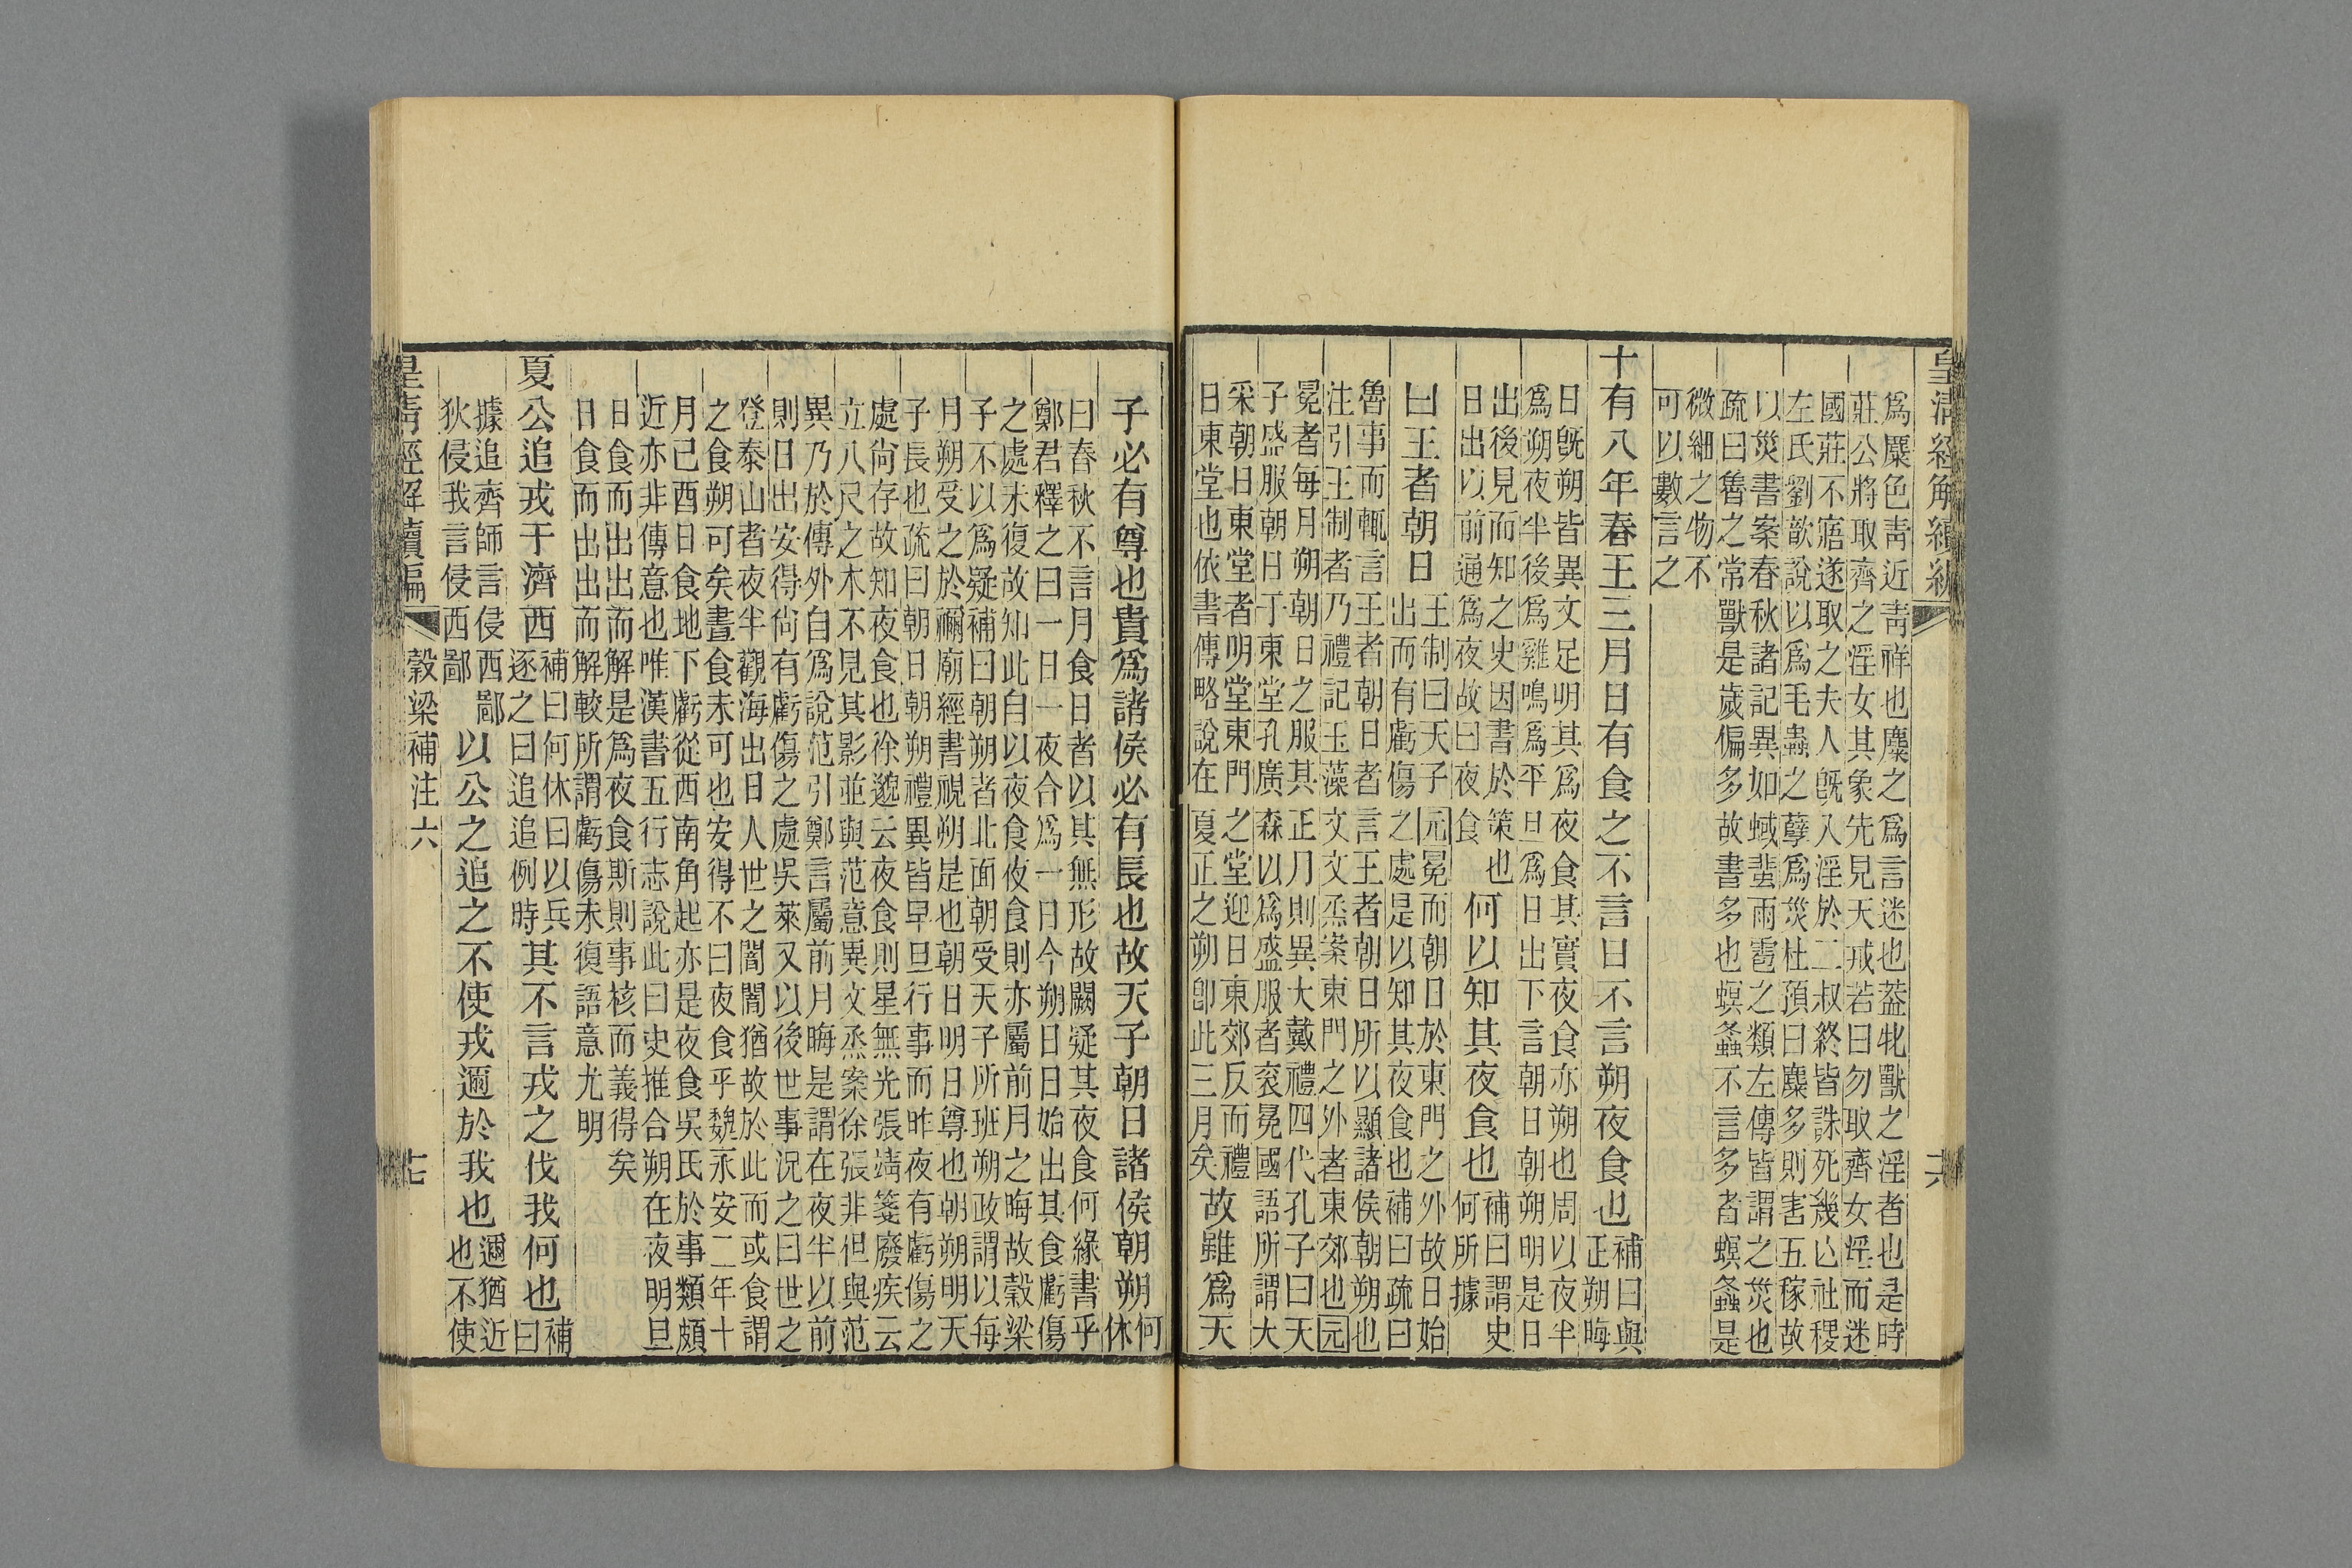 皇清經解續編
爲麋色靑近靑祥也麋之爲言迷也葢牝獸之淫者也是時
莊公將取齊之淫女其象先見天戒若曰勿取齊女淫而迷
國莊不寤遂取之夫人旣入淫於二叔終皆誅死幾亡社稷
左氏劉歆說以爲毛蟲之孽爲災杜預曰麋多則害五稼故
以災書案春秋諸記異如蜮蜚雨雹之類左傳皆謂之災也
疏曰魯之常獸是歲偏多故書多也螟螽不言多者螟螽是
微細之物不
可以數言之
十有八年春王三月日有食之不言日不言朔夜食也
補曰與
正朔晦
日旣朔皆異文足明其爲夜食其實夜食亦朔也周以夜半
爲朔夜半後爲雞鳴爲平旦爲日出下言朝日朝朔明是日
出後見而知之史因書於策也
日出以前通爲夜故曰夜食
何以知其夜食也
補曰謂史
何所據
曰王者朝日
王制曰天子元冕而朝日於東門之外故日始
出而有虧傷之處是以知其夜食也補曰疏曰
魯事而輒言王者朝日者言王者朝日所以顯諸侯朝朔也
注引王制者乃禮記玉藻文文烝案東門之外者東郊也元
冕者每月朔朝日之服其正月則異大戴禮四代孔子曰天
子盛服朝日于東堂孔廣森以爲盛服者袞冕國語所謂大
采朝日東堂者明堂東門之堂迎日東郊反而禮
日東堂也依書傳略說在夏正之朔卽此三月矣
故雖爲天
子必有尊也貴爲諸侯必有長也故天子朝日諸侯朝朔
何
休
曰春秋不言月食日者以其無形故闕疑其夜食何緣書乎
鄭君釋之曰一日一夜合爲一日今朔日日始出其食虧傷
之處未復故知此自以夜食夜食則亦屬前月之晦故穀梁
子不以爲疑補曰朝朔者北面朝受天子所班朔政謂以每
月朔受之於禰廟經書視朔是也朝日明日尊也朝朔明天
子長也疏曰朝日朝朔禮異皆早旦行事而昨夜有虧傷之
處尙存故知夜食也徐邈云夜食則星無光張靖箋廢疾云
立八尺之木不見其影並與范意異文烝案徐張非但與范
異乃於傳外自爲說范引鄭言屬前月晦是謂在夜半以前
則日出安得尙有虧傷之處吳萊又以後世事況之曰世之
登泰山者夜半觀海出日人世之闇闇猶故於此而或食謂
之食朔可矣晝食未可也安得不曰夜食乎魏永安二年十
月己酉日食地下虧從西南角起亦是夜食吳氏於事類頗
近亦非傳意也唯漢書五行志說此曰史推合朔在夜明旦
日食而出出而解是爲夜食斯則事核而義得矣
日食而出出而解較所謂虧傷未復語意尤明
夏公追戎于濟西
補曰何休曰以兵
逐之曰追追例時
其不言戎之伐我何也
補
曰
據追齊師言侵西鄙
狄侵我言侵西鄙
以公之追之不使戎邇於我也
邇猶近
也不使
皇清經解續編
穀梁補注六